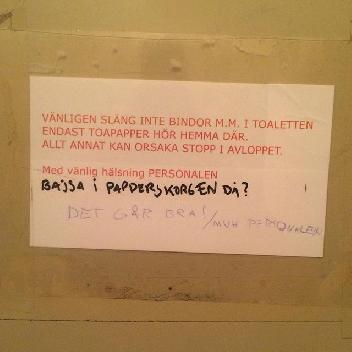 VÄNLIGEN SLÄNG INTE BINDOR M.M. I TOALETTEN
ENDAST TOAPAPPER HÖR HEMMA DÄR.
ALLT ANNAT KAN ORSAKA STOPP I AVLOPPET.
Med vänlig hälsning PERSONALEN
BAJSA i PAPPERSKORGEN DÅ?
DET GÅR BRA! /MVH PERSONALEN